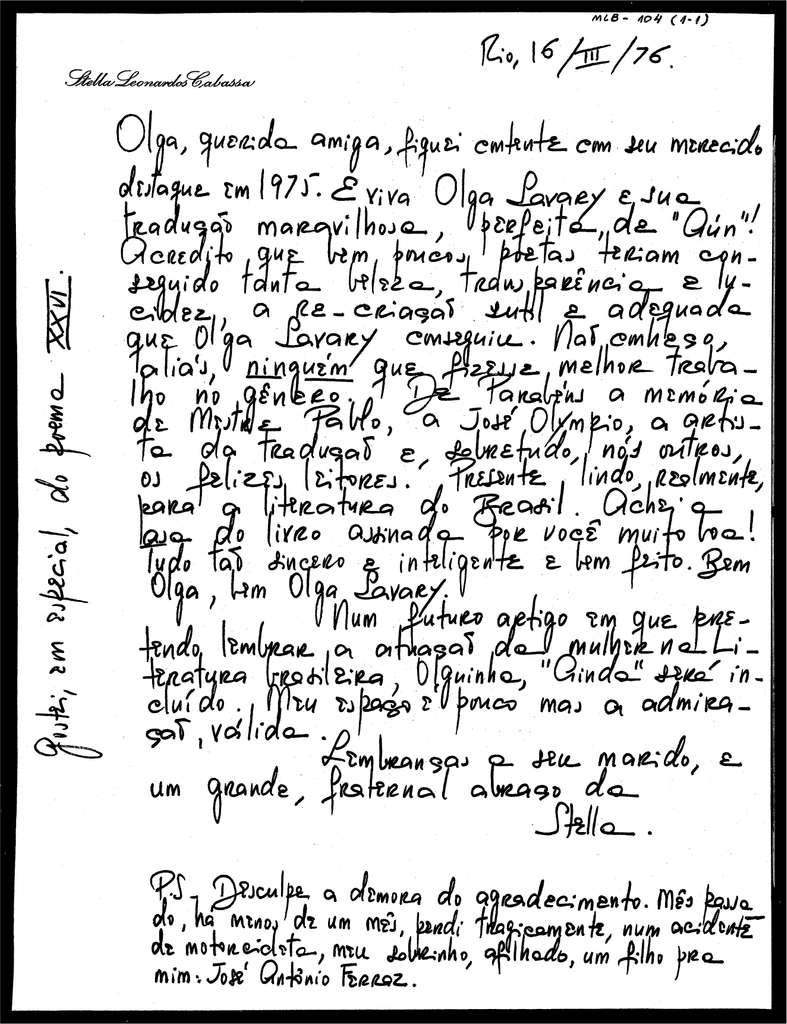 MLB - 104 (1-1)
Rio, 16/III/76.
Stella Leonardos Cabassa
Olga, querida amiga, fiquei contente com seu merecido
destaque em 1975. E viva Olga Savary e sua
tradução maravilhosa, perfeita, de "Aún"!
Acredito que bem poucos poetas teriam con-
seguido tanta beleza, transparência e lu-
cidez, a re-criação sutil e adequada
que Olga Savary conseguiu. Não conheço,
aliás, ninguém que fizesse melhor traba-
lho no gênero. De Parabéns a memória
de Mestre Pablo, a José Olympio, a artis-
ta da tradução e, sobretudo, nós outros,
os felizes leitores. Presente lindo, realmente,
para a literatura do Brasil. Achei a
do livro assinada por você muito boa!
Tudo tão sincero e inteligente e bem feito. Bem
Olga, bem Olga Savary.
Num futuro artigo em que pre-
tendo lembrar a atuação da mulher na Li-
teratura brasileira, Olguinha, "Ainda" será in-
cluído. Meu espaço é pouco mas a admira-
ção, válida.
Lembranças a seu marido, e
um grande, fraternal abraço da
Stella.
P.S - Desculpe a demora do agradecimento. Mês passa
do, há menos de um mês, perdi tragicamente, num acidente
de motocicleta, meu sobrinho, afilhado, um filho pra
mim: José Antônio Ferraz.
Gostei, em especial, do poema XXVI.